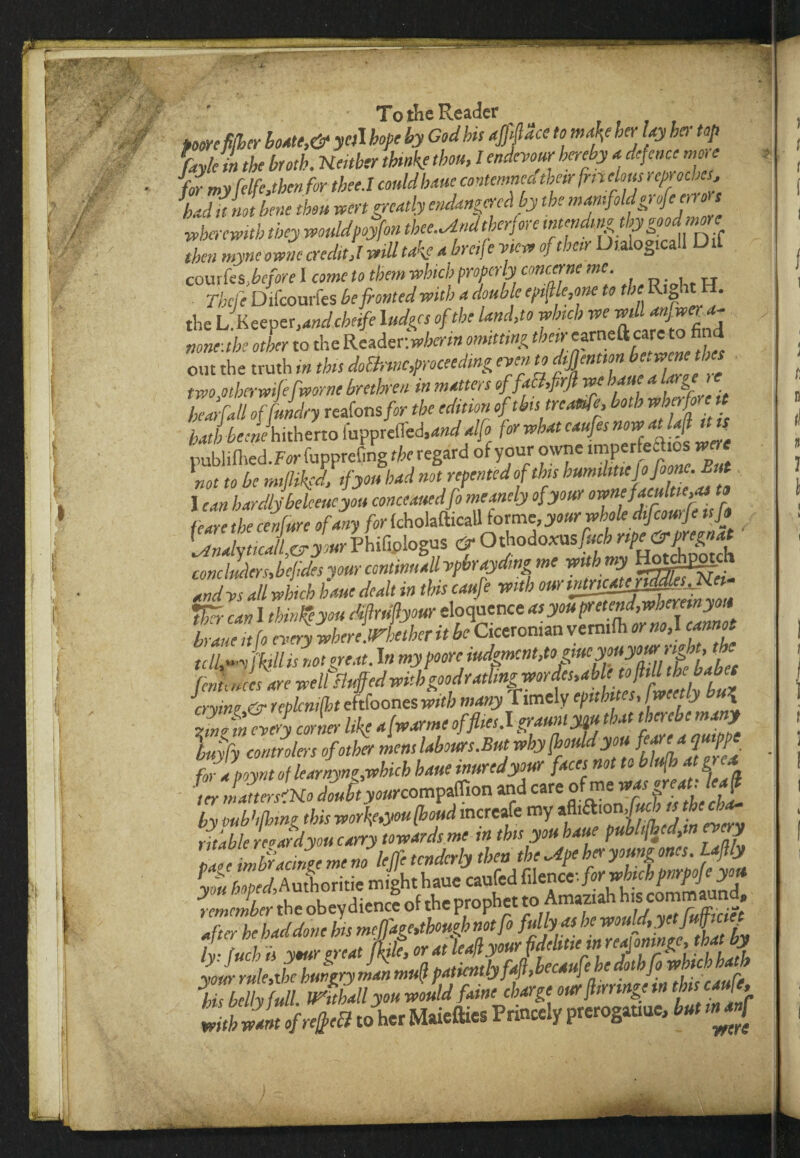 To the Reader
poore fisher boate,& yet I hope by God his assistãce to make her lay her top
sayle in the broth. Neither thinke thou, I endevour hereby a defence more
for my selfe,then for thee.I could haue contemned their frivelous reproches,
had it not bene thou wert greatly endangered by the manifold grose errors
wherewith they would poyson thee.And therfore intending thy good more
then myne owne credit,I will take a breife view of their Dialogicall Dis
courses,before I come to them which properly concerne me.
These Discourses be fronted with a double epistle,one to the Right H.
the L.Keeper,and cheife Iudges of the land,to which we will answer a-
none:the other to the Reader:wherin omitting their earnest care to find
out the truth in this doctrine,proceeding even to dissention betwene thes
two,otherwise sworne brethren in matters of fact,first we haue a large re
hearsall of sundry reasons for the edition of this treatise, both wherfore it
hath beene hitherto suppressed,and also for what causes now at last it is
published.For suppresing the regard of your owne imperfectiõs were
not to be misliked, if you had not repented of this humilitie so soone. But
I can hardly beleeue you conceaued so meanely of your owne facultie,as to
feare the censure of any for scholasticall forme, your whole discourse is so
Analyticall,& your Phisiologus & Othodoxus such ripe & pregnãt
concluders,besides your continuall vpbrayding me with my Hotchpotch
and vs all which haue dealt in this cause with our intricate riddles. Nei-
ther can I thinke you distrust your eloquence as you pretend,wherein you
braue it so every where.Whether it be Ciceronian vernish or no,I cannot
tell,my skill is not great. In my poore iudgment,to giue you your right, the
sentences are well stuffed with good ratling wordes,able to still the babes
crying,& replenisht eftsoones with many Timely epithites, sweetly buz
zing in every corner like a swarme of flies.I graunt you that there be many
buysy controlers of other mens labours.But why should you feare a quippe
for a poynt of learnyng,which haue inured your faces not to blush at grea
ter matters?No doubt your compassion and care of me was great: least
by publishing this worke,you shoud increase my affliction,such is the cha-
ritable regard you carry towards me in this you haue published,in every
page imbracinge me no lesse tenderly then the Ape her young ones. Lastly
you hoped,Authoritie might haue caused silence: for which purpose you
remember the obeydience of the prophet to Amaziah his commaund,
after he had done his message,though not so fully as he would, yet sufficiẽt
ly: such is your great skile, or at least your fidelitie in reasoninge, that by
your rule,the hungry man must patiently fast,because he doth so which hath
his belly full. Withall you would faine charge our stirringe in this cause,
with want of respect to her Maiesties Princely prerogatiue, but in ans
were